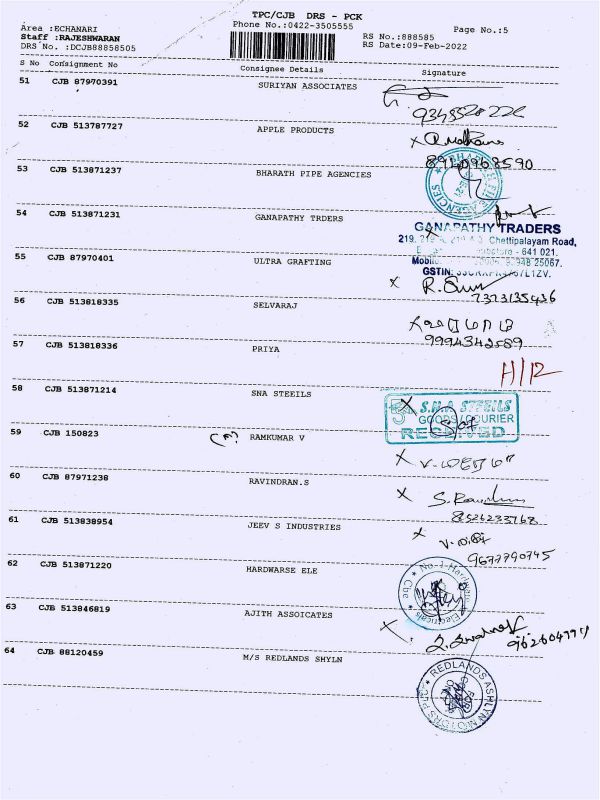 TPC/CJB DRS - PCK
Area :ECHANARI Phone No.:0422-3505555 Page No.:5
Staff :RAJESHWARAN RS No.:888585
DRS No. :DCJB88858505 RS Date:09-Feb-2022
S No Consignment No Consignee Details Signature
51 CJB 87970391 SURIYAN ASSOCIATES
52 CJB 513787727 APPLE PRODUCTS
8940968590
53 CJB 513871237 BHARATH PIPE AGENCIES
54 CJB 513871231 GANAPATHY TRDERS
GANAPATHY TRADERS
Chettipalayam Road,
641 021.
55 CJB 87970401 ULTRA GRAFTING
7373135436
56 CJB 513818335 SELVARAJ
9994342589
57 CJB 513818336 PRIYA
H/12
58 CJB 513871214 SNA STEEILS
S.N.A STEEILS
GOODS/COURIER
RECEIVED
59 CJB 150823 RAMKUMAR V
60 CJB 87971238 RAVINDRAN.S
8526233768
61 CJB 513838954 JEEV S INDUSTRIES
9677790745
62 CJB 513871220 HARDWARSE ELE
No-1-Hardware Electricals Cbe
63 CJB 513846819 AJITH ASSOICATES
64 CJB 88120459 M/S REDLANDS SHYLN
REDLANDS ASHLYN MOTORS